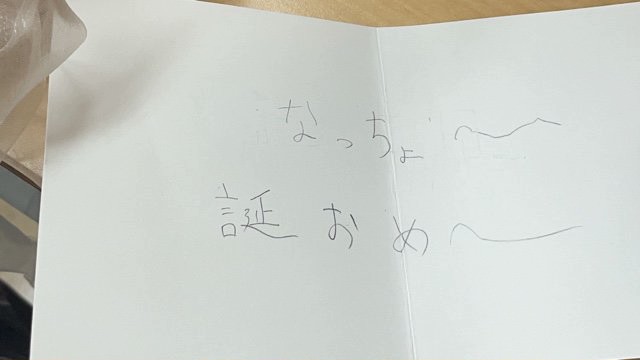 なっちょ〜
誕おめ〜